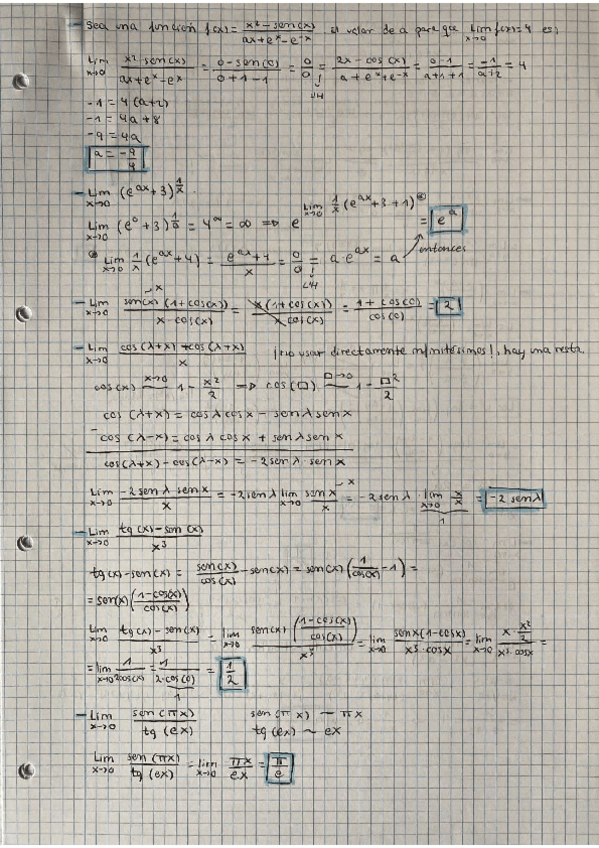 - Sea una función f(x) = (x² - sen(x))/(ax + e^x - e^-x). El valor de a para que lim x→0 f(x) = 4 es:
Lim x→0 (x² - sen(x))/(ax + e^x - e^x) = (0 - sen(0))/(0 + 1 - 1) = 0/0 = L'H (2x - cos(x))/(a + e^x + e^-x) = (0 - 1)/(a + 1 + 1) = -1/(a + 2) = 4
-1 = 4(a+2)
-1 = 4a + 8
-9 = 4a
a = -9/4
- Lim x→0 (e^ax + 3)^(1/x)
Lim x→0 (e^0 + 3)^(1/0) = 4^∞ = ∞ ⇒ e^(Lim x→0 1/x (e^ax + 3 + 1)) = e^a
Lim x→0 1/x (e^ax + 4) = (e^ax + 1)/x = 0/0 = L'H a·e^ax = a entonces
- Lim x→0 (sen(x) (1 + cos(x)))/(x·cos(x)) ~x = (x(1 + cos(x)))/(x cos(x)) = (1 + cos(0))/cos(0) = 2
- Lim x→0 (cos(λ+x) - cos(λ+x))/x ¡no usar directamente infinitésimos!, hay una resta.
cos(x) x→0 ~ 1 - x²/2 ⇒ cos(□) □→0 ~ 1 - □²/2
cos(λ+x) = cos λ cos x - sen λ sen x
- cos(λ-x) = cos λ cos x + sen λ sen x
cos(λ+x) - cos(λ-x) = -2 sen λ · sen x
Lim x→0 (-2 sen λ sen x)/x = -2 sen λ lim x→0 (sen x)/x ~x = -2 sen λ · lim x→0 x/x = -2 sen λ
1
- Lim x→0 (tg(x) - sen(x))/x³
tg(x) - sen(x) = sen(x)/cos(x) - sen(x) = sen(x) (1/cos(x) - 1) =
= sen(x) ((1 - cos(x))/cos(x))
Lim x→0 (tg(x) - sen(x))/x³ = lim x→0 (sen(x) ((1 - cos(x))/cos(x)))/x³ = lim x→0 (sen x (1 - cos x))/(x³·cos x) = lim x→0 (x · x²/2)/(x³·cos x) =
= lim x→0 1/(2cos(x)) = 1/(2·cos(0)) = 1/2
1
- Lim x→0 sen(πx)/tg(ex) sen(πx) ~ πx
tg(ex) ~ ex
Lim x→0 sen(πx)/tg(ex) = lim x→0 πx/ex = π/e